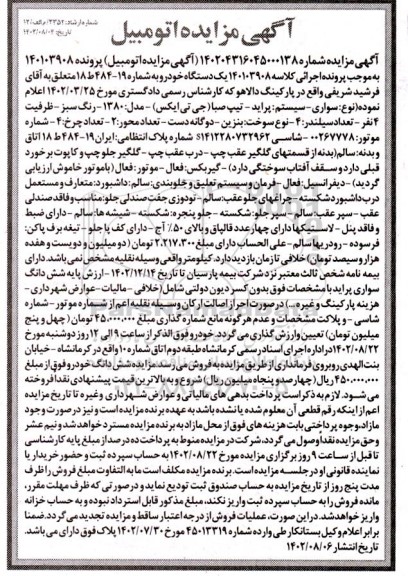 شماره ارشاد: ۴۳۵۲/م الف/۱۲
تاریخ: ۱۴۰۲/۰۸/۰۲
آگهی مزایده اتومبیل
آگهی مزایده شماره ۱۴۰۲۰۴۳۱۶۰۴۵۰۰۰۱۳۸ (آگهی مزایده اتومبیل) پرونده ۱۴۰۱۰۳۹۰۸
به موجب پرونده اجرائی کلاسه ۱۴۰۱۰۳۹۰۸ یک دستگاه خودرو به شماره ۱۹-۴۸۴ ط ۱۸ متعلق به آقای
فرشید شریفی واقع در پارکینگ دالاهو که کارشناس رسمی دادگستری مورخ ۱۴۰۲/۰۳/۲۵ اعلام
نموده (نوع: سواری – سیستم: پراید – تیپ صبا (جی تی ایکس) – مدل: ۱۳۸۰ – رنگ سبز – ظرفیت
۴ نفر – تعداد سیلندر: ۴ – نوع سوخت: بنزین – دوگانه دست – تعداد محور: ۲ – تعداد چرخ: ۴ – شماره
موتور: ۰۰۲۶۷۷۷۸ – شاسی S۱۴۱۲۲۸۰۷۳۲۹۶۲ شماره پلاک انتظامی: ایران ۱۹-۴۸۴ ط ۱۸ اتاق
و بدنه: سالم (بدنه از قسمتهای گلگیر عقب چپ – درب عقب چپ – گلگیر جلو چپ و کاپوت برخورد
قبلی دارد و سقف آفتاب سوختگی دارد) – گیربکس: فعال – موتور: فعال (با موتور خاموش ارزیابی
گردید) – دیفرانسیل: فعال – لوازم و سیستم تعلیق و جلوبندی: سالم: داشبورد: متعارف و مستعمل
درب داشبورد شکسته – چراغهای جلو عقب: سالم – تودوزی جفت صندلی جلو: مناسب و فاقد صندلی
عقب – سپر عقب: سالم – سپر جلو: شکسته – جلو پنجره: شکسته – شیشه ها: سالم – دارای ضبط
و فاقد پنل – لاستیکها دارای چهار عدد قالپاق و بالای ۵۰٪ آج – دارای کف پا جلو – تیغه برف پاکن:
فرسوده – رودریها سالم – علی الحساب دارای مبلغ ۲.۲۱۷.۳۰۰ تومان (دو میلیون و دویست و هفده
هزار و سیصد تومان) خلافی تا زمان بازدید دارد. کیلومتر واقعی وسیله نقلیه مشخص نمی باشد. دارای
بیمه نامه شخص ثالث معتبر نزد شرکت بیمه پارسیان تا تاریخ ۱۴۰۲/۱۲/۱۴ – ارزش پایه شش دانگ
سواری پراید با مشخصات فوق بدون کسر دیون دولتی شامل (خلافی – مالیات – عوارض شهرداری –
هزینه پارکینگ و غیره...) در صورت احراز اصالت ارکان وسیله نقلیه اعم از شماره موتور – شماره
شاسی – و پلاک مشخصات و عدم هرگونه مانع شماره گذاری مبلغ ۴۵.۰۰۰.۰۰۰ تومان (چهل و پنج
میلیون تومان) تعیین و ارزش گذاری می گردد. خودرو فوق الذکر از ساعت ۹ الی ۱۲ روز دوشنبه مورخ
۱۴۰۲/۰۸/۲۲ در اداره اجرای اسناد رسمی کرمانشاه طبقه دوم اتاق شماره ۱۰ واقع در کرمانشاه – خیابان
بنت الهدی روبروی فرمانداری از طریق مزایده به فروش می رسد. مزایده شش دانگ خودرو فوق از مبلغ
۴۵۰.۰۰۰.۰۰۰ ریال (چهارصد و پنجاه میلیون ریال) شروع و به بالاترین قیمت پیشنهادی نقدا فروخته
می شود. لازم به ذکر است پرداخت بدهی های مالیاتی و عوارض شهرداری و غیره تا تاریخ مزایده
اعم از اینکه رقم قطعی آن معلوم شده یا نشده باشد به عهده برنده مزایده است و نیز در صورت وجود
مازاد، وجوه پرداختی بابت هزینه های فوق از محل مازاد به برنده مزایده مسترد خواهد شد و نیم عشر
و حق مزایده نقدا وصول می گردد، شرکت در مزایده منوط به پرداخت ده درصد از مبلغ پایه کارشناسی
تا قبل از ساعت ۹ روز برگزاری مزایده مورخ ۱۴۰۲/۰۸/۲۲ به حساب سپرده ثبت و حضور خریدار یا
نماینده قانونی او در جلسه مزایده است. برنده مزایده مکلف است ما به التفاوت مبلغ فروش را ظرف
مدت پنج روز از تاریخ مزایده به حساب صندوق ثبت تودیع نماید و در صورتی که ظرف مهلت مقرر،
مانده فروش را به حساب سپرده ثبت واریز نکند، مبلغ مذکور قابل استرداد نبوده و به حساب خزانه
واریز خواهد شد. در این صورت، عملیات فروش از درجه اعتبار ساقط و مزایده تجدید می گردد. ضمنا
برابر اعلام وکیل بستانکار طی وارده شماره ۴۵۰۱۳۳۱۹ مورخ ۱۴۰۲/۰۷/۳۰ پلاک فوق دارای می باشد.
تاریخ انتشار ۱۴۰۲/۰۸/۰۶